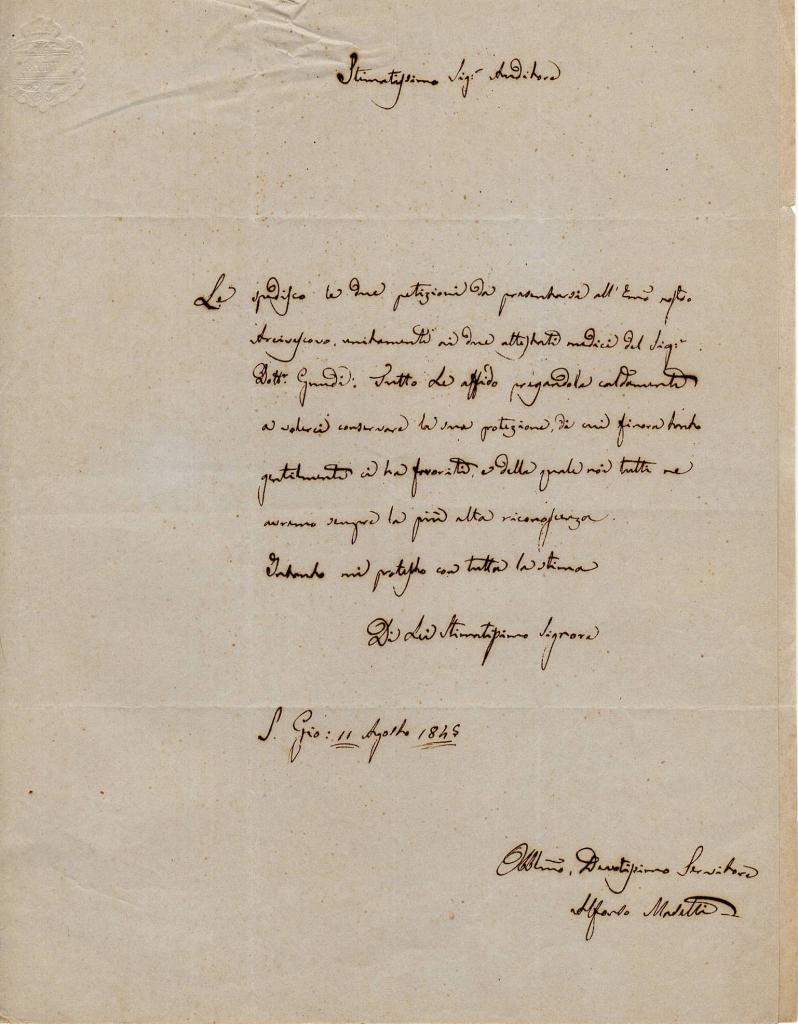 Stimatissimo Sigr Auditore
Le spedisco le due petizioni da presentarsi all' Emo nostro
Arcivescovo, unitamente ai due attestati medici del Sigr
Dottr. Gundi: Tutto Le affido pregandola caldamente
a volerci conservare la sua protezione, di cui finora tanto
gentilmente ci ha favoriti, e della quale noi tutti ne
avremo sempre la più alta riconoscenza.
Intanto mi protesto con tutta la stima
Di Lei Stimatissimo Signore
S. Gio: 11 Agosto 1845
Obblmo, Devotissimo Servitore
Alfonso